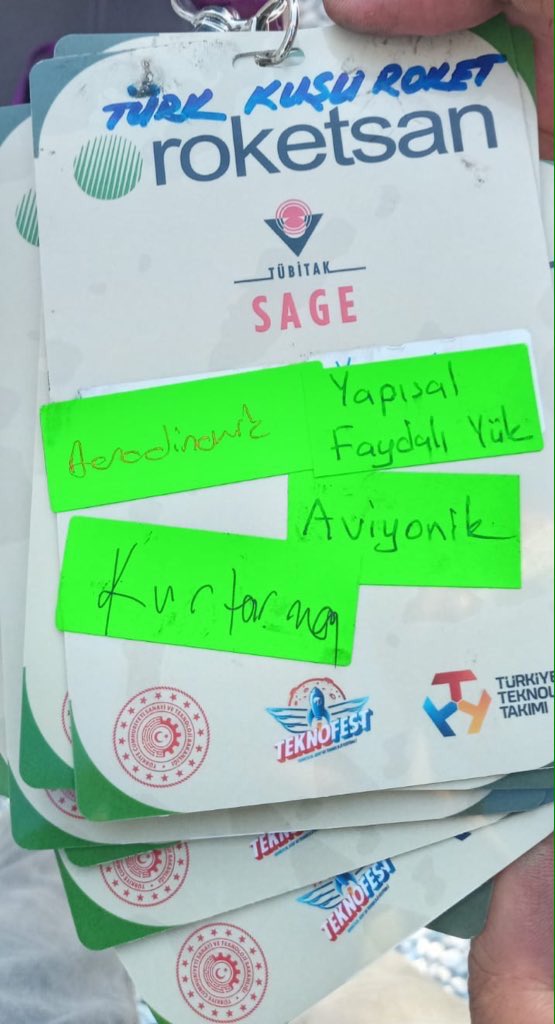 TÜRK KUŞU ROKET
roketsan
TÜBİTAK
SAGE
Aerodinamik
Yapısal
Faydalı Yük
Aviyonik
Kurtarma
TEKNOFEST
TÜRKİYE
TEKNOL
TAKIMI
TEKNOFEST